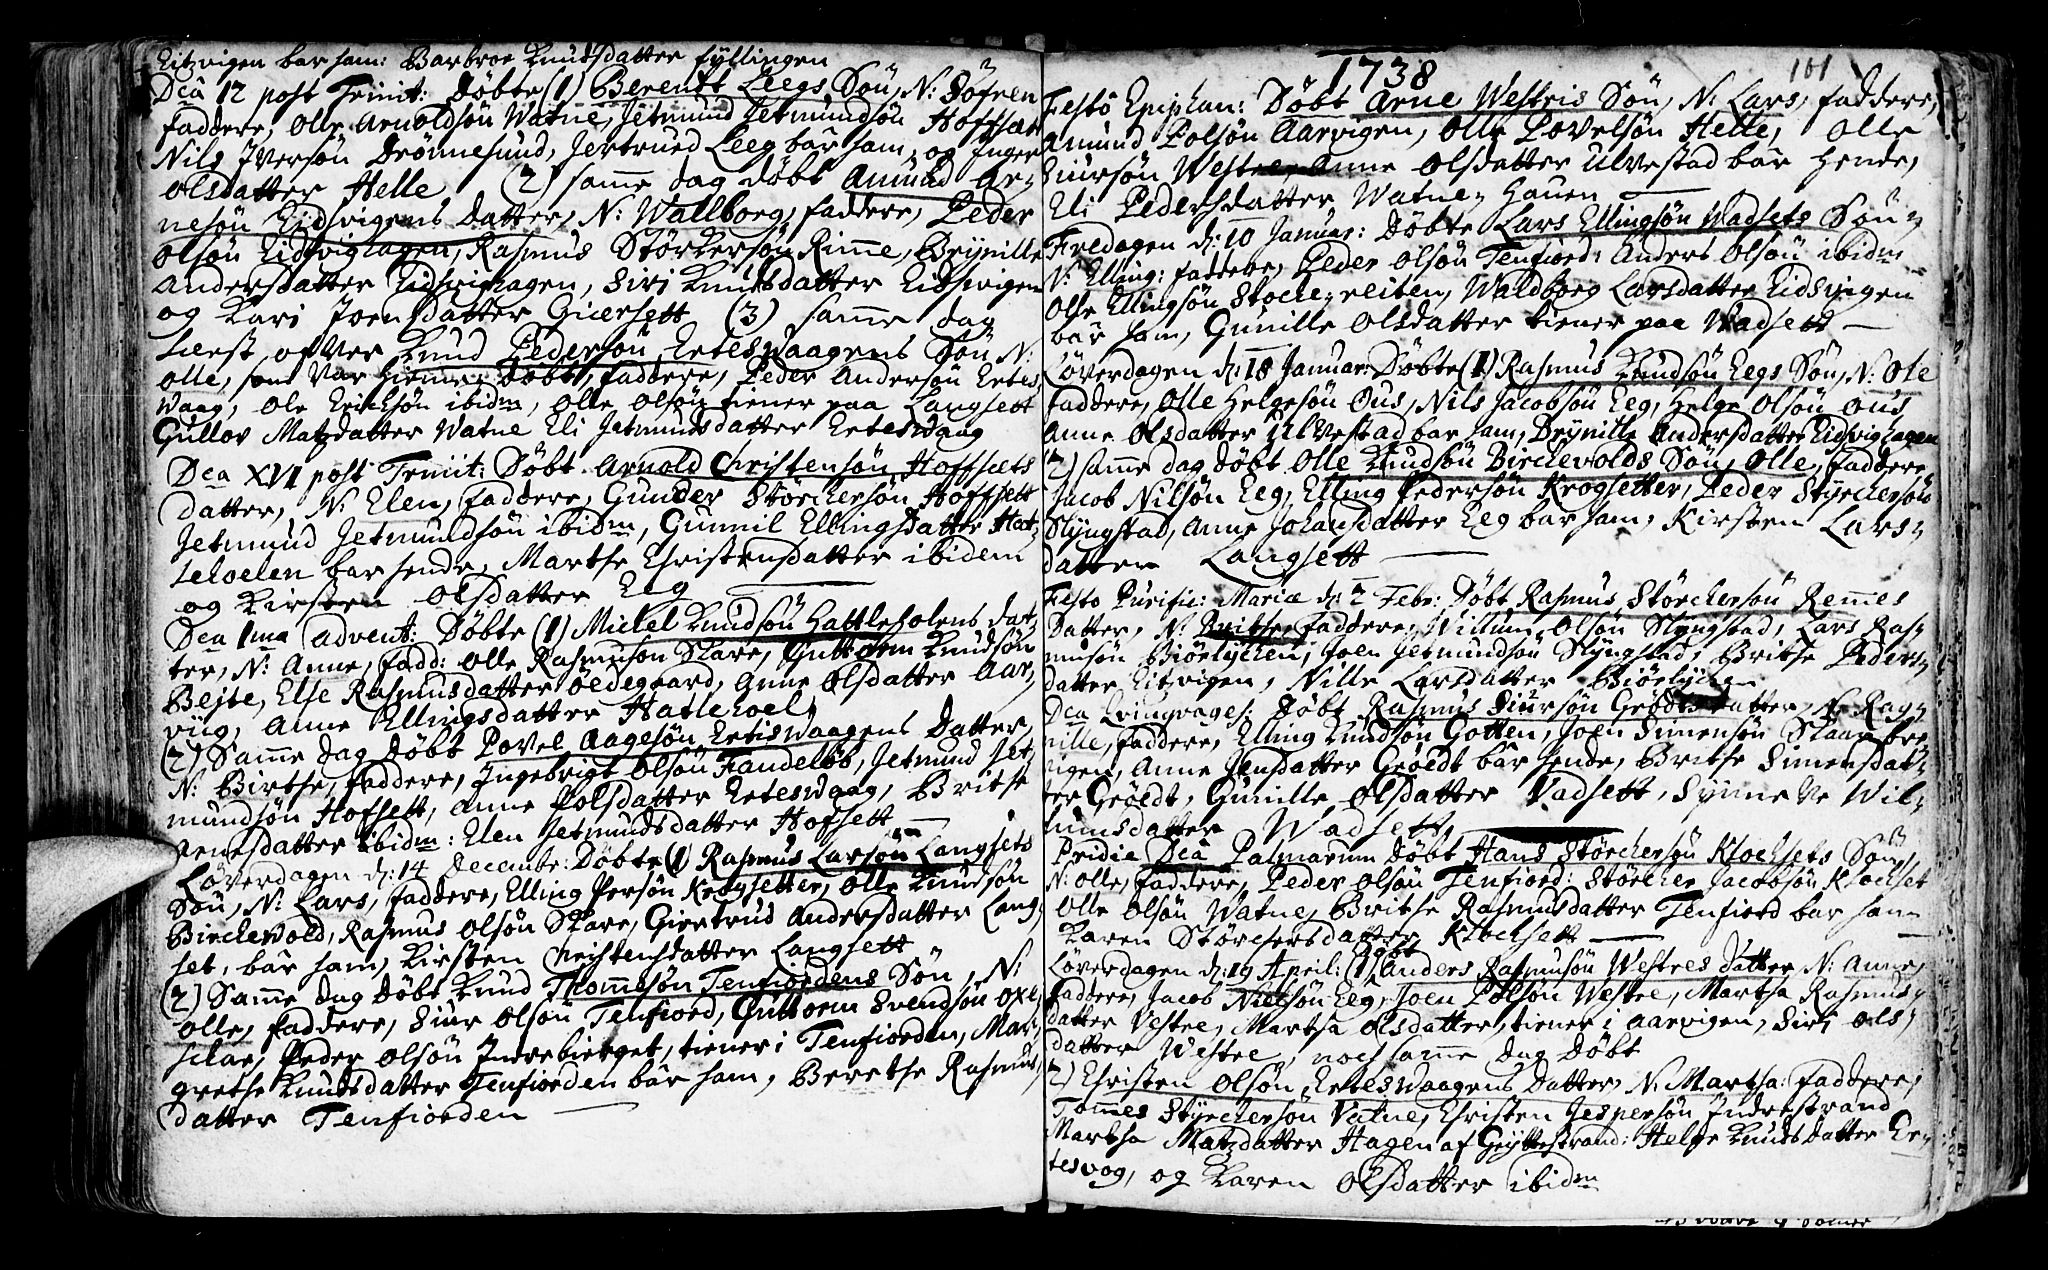 Eitvigen bar ham: Barbroe Knudsdatter fyllingen
Dca 12 post Trinit: Døbte (1) Berendt Leegs Søn, N:
Faddere, Olle Arnoldsøn Watne, Jetmund Jetmundsøn Hoffsæt
Nils Iversøn Drønnesund, Jertrued Leeg bar ham, og Inger
Olsdatter Helle (2) samme dag døbt Amund Ar-
nesøn Eidsvigens datter, N: Wallborg, faddere, Peder
Olsøn Eidsvighagen, Rasmus Størkersøn Rime, Brynille
Andersdatter Eidsvighagen, Siri Knudsdatter Eidsvigen
og Kari Joensdatter Giersett (3) samme dag
Lerst ofver Knud Pedersøn Erteswaagens Søn N:
Olle, som var hieme døbt, faddere, Peder Andersøn Ertes-
waag, Ole Erichsøn ibidm, Olle Olsøn tiener paa Langsett
Gullov Matzdatter Watne Eli Jetmundsdatter Erteswaag
Dca XVI post Trinit: Døbt Arnold Christensøn Hoffsæts
datter, N: Elen, faddere, Gunder Størchersøn Hoffsett
Jetmund Jetmundsøn ibidm, Gunnil Ellingsdatter Hat-
leloelen bar hende, Marthe Christensdatter ibidem
og Kirsten Olsdatter Eeg
Dca 1ma Advent: Døbte (1) Mickel Knudsøn Hattleholens dat-
ter, N: Anne, fadd: Olle Rasmusøn Skare, Guttorm Knudsøn
Bejte, Else Rasmusdatter Oedegaard, Anne Olsdatter Aar-
viig, Anne Ellingsdatter Hatleloel
(2) Samme dag døbt Povel Aagesøn Ertiswaagens Datter,
N: Birthe, faddere, Ingebrigt Olsøn Fandeløb, Jetmund Jet-
mundsøn Hofsett, Anne Polsdatter Erteswaag, Brithe
Arnesdatter ibidm: Elen Jetmundsdatter Hofsett
Løverdagen d: 14 Decembr: Døbte (1) Rasmus Larsøn Langsets
Søn, N: Lars, faddere, Elling Persøn Krogsetter, Olle Knudsøn
Birchevold, Rasmus Olsøn Skare, Giertrud Andersdatter Lang-
set, bar ham, Kirsten Christensdatter Langsett
(2) Samme dag døbt Knud Thommsøn Tenfiordens Søn, N:
Olle, faddere, Siur Olsøn Tenfiord, Guttorm Svendsøn Oxe-
schar, Peder Olsøn Indrebierget, tiener i Tenfiorden, Mar-
grethe Knudsdatter Tenfiorden bar ham, Berethe Rasmus-
datter Tenfiorden
1738
101
Festo Epiphan: Døbt Arne Westris Søn, N: Lars, faddere,
Amund Polsøn Aarvigen, Olle Povelsøn Helle, Olle
Siursøn Westre, Anne Olsdatter Ulvestad bar hende,
Eli Pedersdatter Watne-Hauen
Fredagen d: 10 Januar: Døbte Lars Ellingsøn Wadsets Søn-
N: Elling: faddere, Peder Olsøn Tenfiord: Anders Olsøn ibidm
Olle Ellingsøn Stocke-reiten, Waldborg Larsdatter Eidsvigen
bar ham, Gunille Olsdatter tiener paa Wadsett
Løverdagen d: 18 Januar: Døbte (1) Rasmus Knudsøn Eegs Søn, N: Ole
faddere, Olle Helgesøn Ous, Nils Jacobsøn Eeg, Helge Olsøn Ous
Anne Olsdatter Ulvestad bar ham, Brynille Andersdatter Eidsvighagen
2) samme dag døbt Olle Knudsøn Birchevolds Søn, Olle, faddere,
Jacob Nilsøn Eeg, Elling Pedersøn Krogsetter, Peder Styrchersøn
Slyngstad, Anne Johansdatter Eeg bar ham, Kirsten Lars-
datter Langsett
Festo Purific: Mariæ d: 2 Febr: Døbt Rasmus Størchersøn Remes
Datter, N: Brithe, faddere, Willum Olsøn Slyngstad, Lars Ras-
musøn Biørlychen, Joen Jetmundsøn Slyngstad, Brithe Peders-
datter Eitvigen, Nille Larsdatter Biørlychen
Dca Qvinqvages: Døbt Rasmus Siursøn Grødts datter, N: Rag-
nille, faddere, Elling Knudsøn Gotten, Joen Simensøn Skaarbre-
vigen, Anne Jensdatter Grøedt bar hende, Brithe Simensdat-
ter Grøedt, Gunille Olsdatter Vadsett, Synneve Wil-
lumsdatter Wadsett,
Pridie Dca Palmarum døbt Hans Størchersøn Klochsets Søn,
N: Olle, faddere, Peder Olsøn Tenfiord: Størcher Jacobsøn Klochset
Olle Olsøn Watne, Brithe Rasmusdatter Tenfiord bar ham
Karen Størchersdatter Klochsett
Løverdagen d: 19 April: døbt (1) Anders Rasmusøn Westres datter N: Anne,
faddere, Jacob Nielsøn Eeg, Joen Polsøn Westre, Martha Rasmus-
datter Vestre, Martha Olsdatter, tiener i Aarvigen, Siri Ols-
datter Westre, noch samme dag døbt
2) Christen Olsøn Erteswaagens datter, N: Martha: faddere,
Tommes Styrchersøn Vatne, Christen Jespersøn Indrestrand
Martha Matzdatter Hagen af Gryttestrand: Helge Knudsdatter Er-
tesvog, og Karen Olsdatter ibidm